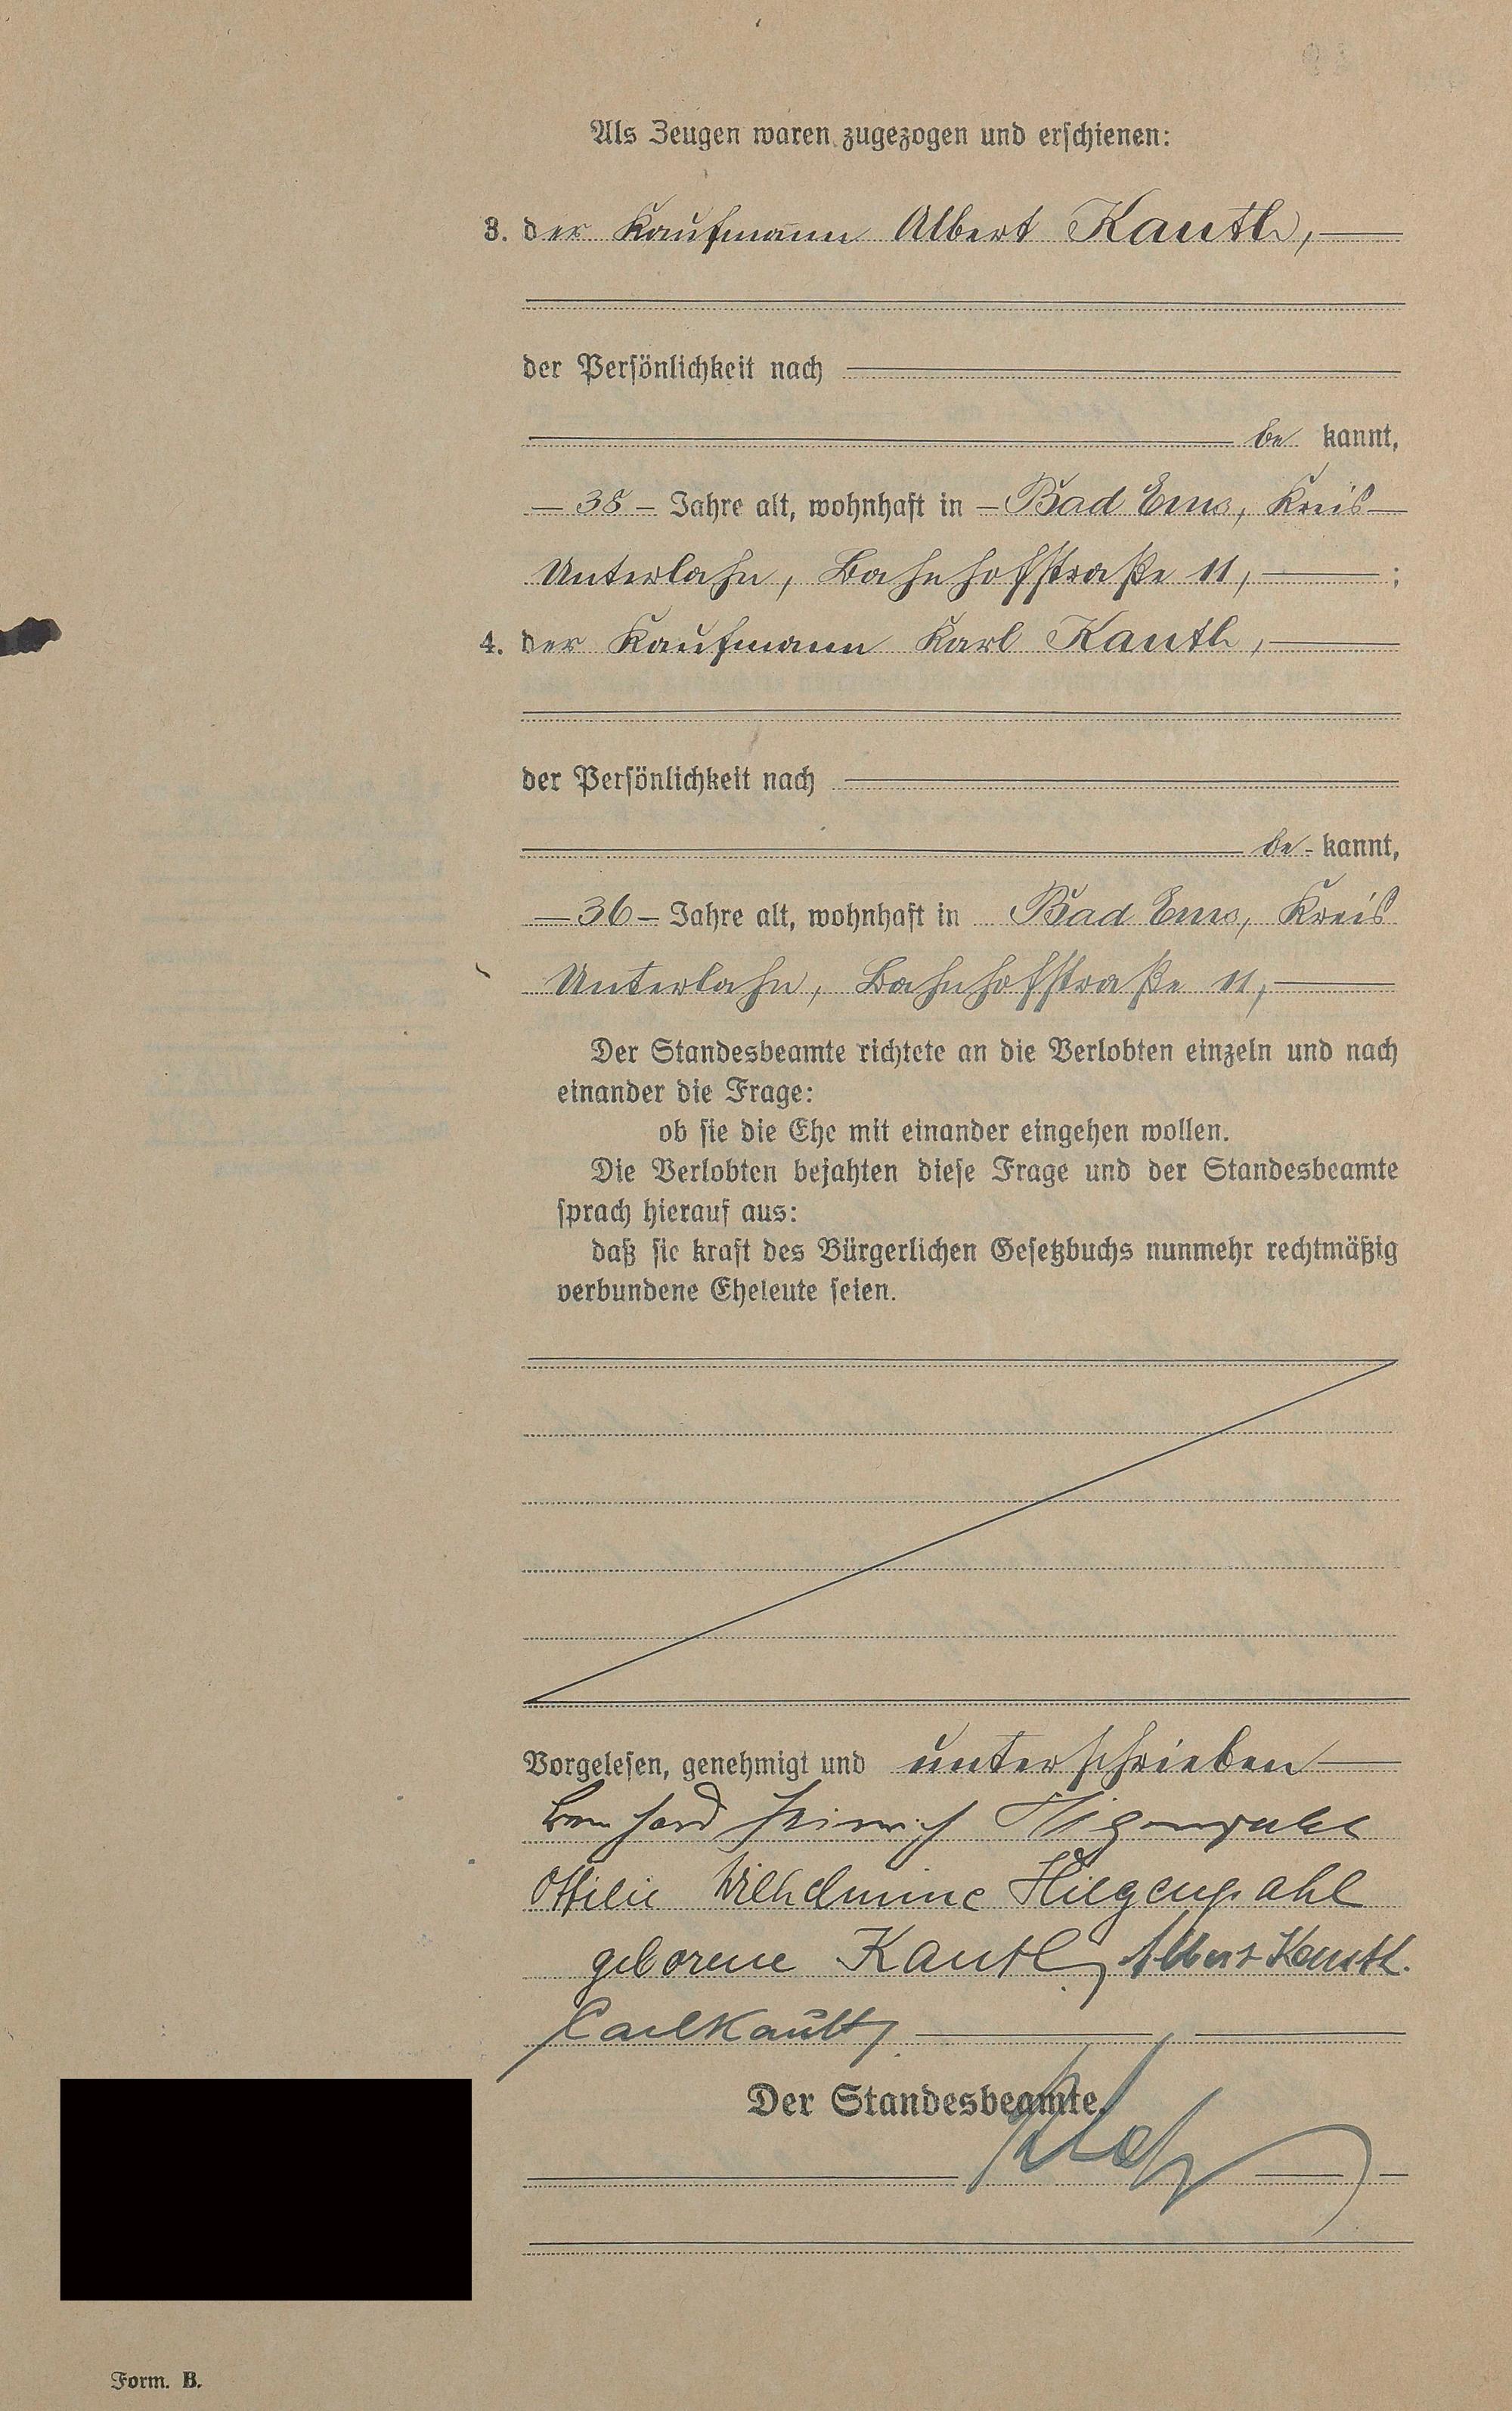 Als Zeugen waren zugezogen und erschienen:
3. der Kaufmann Albert Kauth,
der Persönlichkeit nach
be kannt,
38 Jahre alt, wohnhaft in Bad Ems, Kreis
Unterlahn, Bahnhofstraße 11, ;
4. der Kaufmann Karl Kauth,
der Persönlichkeit nach
be kannt,
36 Jahre alt, wohnhaft in Bad Ems, Kreis
Unterlahn, Bahnhofstraße 11,
Der Standesbeamte richtete an die Verlobten einzeln und nach
einander die Frage:
ob sie die Ehe mit einander eingehen wollen.
Die Verlobten bejahten diese Frage und der Standesbeamte
sprach hierauf aus:
daß sie kraft des Bürgerlichen Gesetzbuchs nunmehr rechtmäßig
verbundene Eheleute seien.
Vorgelesen, genehmigt und unterschrieben
Bernhard Heinrich Hilgenpahl
Ottilie Wilhelmine Hilgenpahl
geborene Kauth, Albert Kauth.
Carl Kauth
Der Standesbeamte.
Form. B.